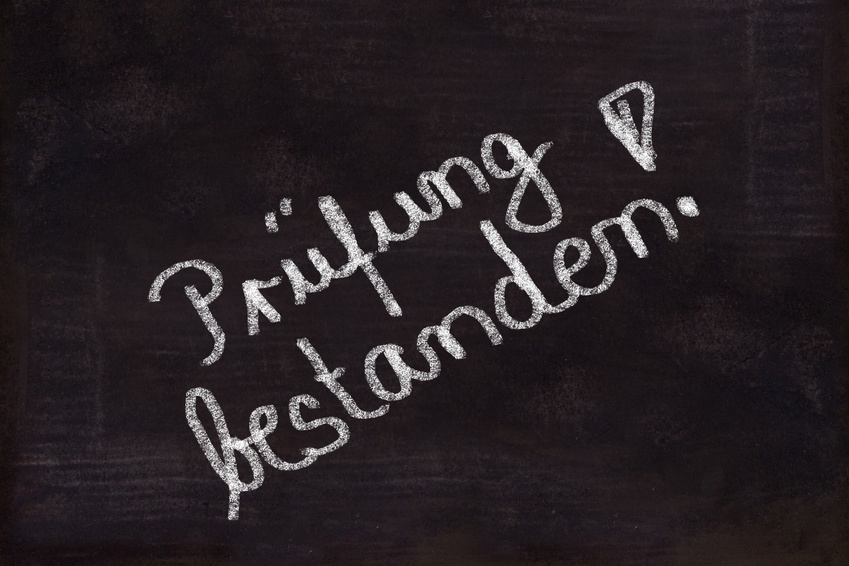 Prüfung
bestanden!